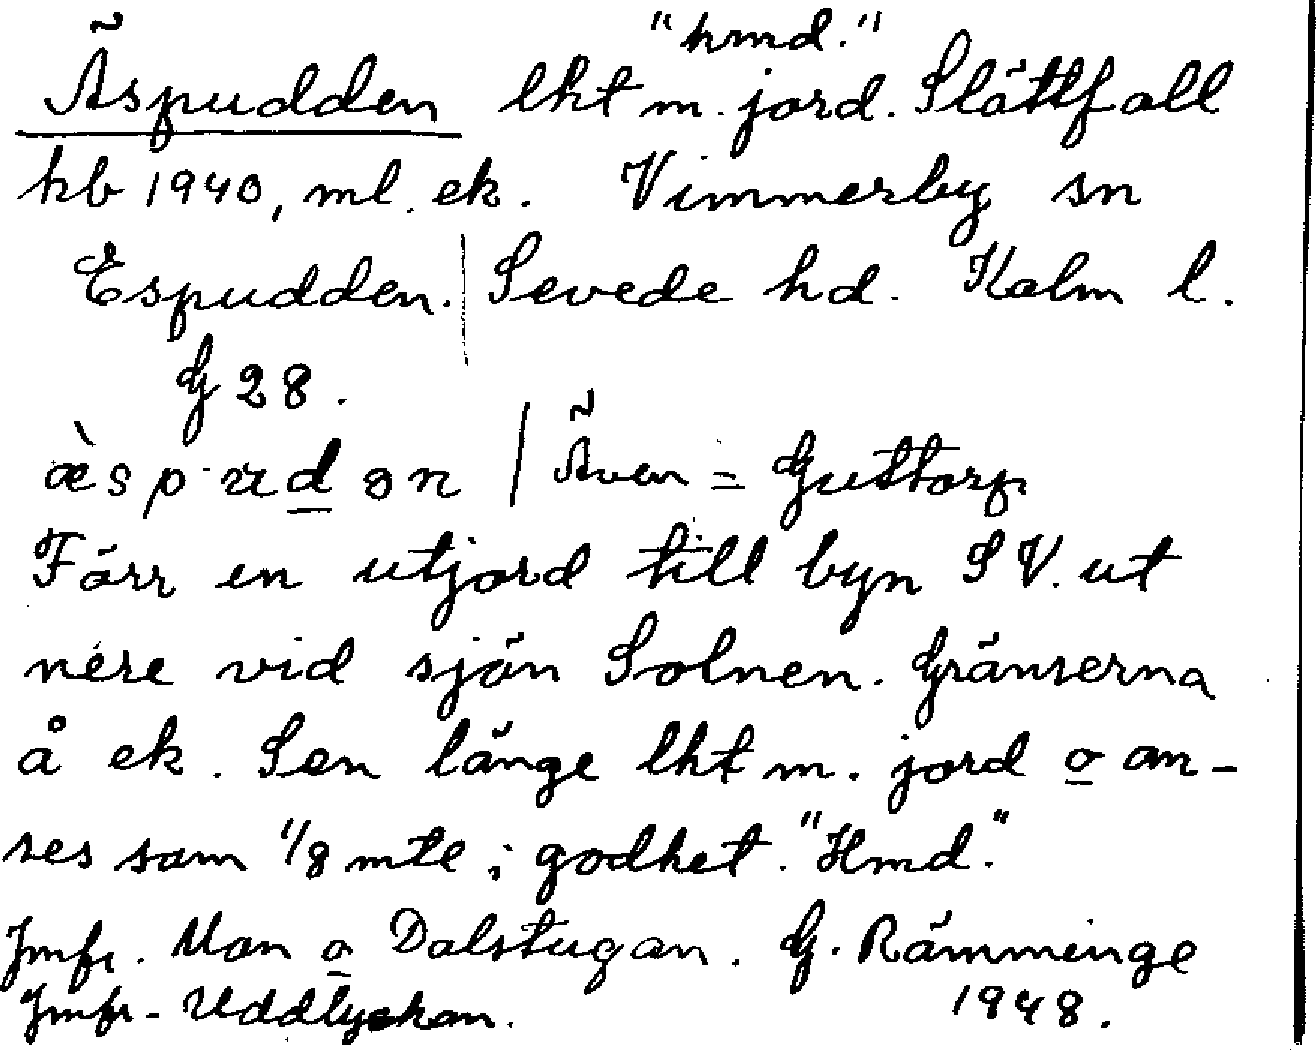 "hmd."
Äspudden lht m. jord. Slättfall
kb 1940, ml. ek. Vimmerby sn
Espudden. Sevede hd. Kalm l.
G 28.
Även = Guttorp
Förr en utjord till byn SV. ut
nere vid sjön Solnen. Gränserna
å ek. Sen länge lht m. jord o an-
ses som 1/8 mtl i godhet. "Hmd."
Jmfr. Mon o Dalstugan. G. Rämminge
Jmfr. Uddlyckan. 1948.